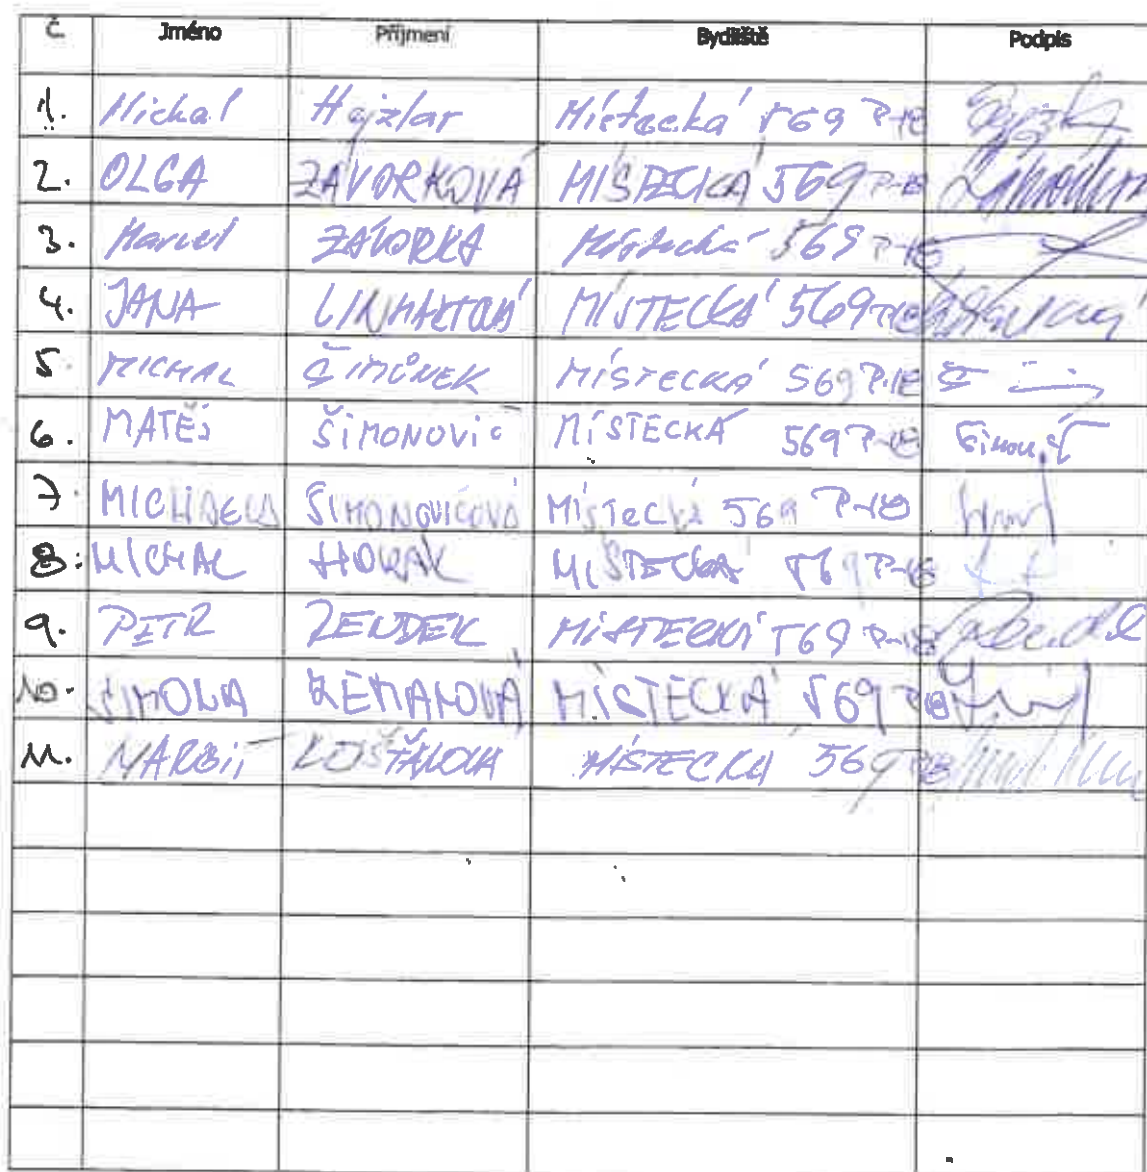 Č Jméno Příjmení Bydliště Podpis
1. Michal Hajzlar Místecká 569 P-18
2. OLGA ZÁVORKOVÁ MÍSTECKÁ 569 P-18
3. Marcel ZÁVORKA Místecká 569 P-18
4. JANA LINHARTOVÁ MÍSTECKÁ 569 P-18
5. MICHAL ŠIMŮNEK MÍSTECKÁ 569 P-18
6. MATĚJ ŠIMONOVIČ MÍSTECKÁ 569 P-18
7. MICHAELA ŠIMONOVIČOVÁ MÍSTECKÁ 569 P-18
8. MICHAL HORÁK MÍSTECKÁ 569 P-18
9. PETR MÍSTECKÁ 569 P-18
10. ZEMANOVÁ MÍSTECKÁ 569 P-18
11. KOŠŤÁLOVÁ MÍSTECKÁ 569 P-18